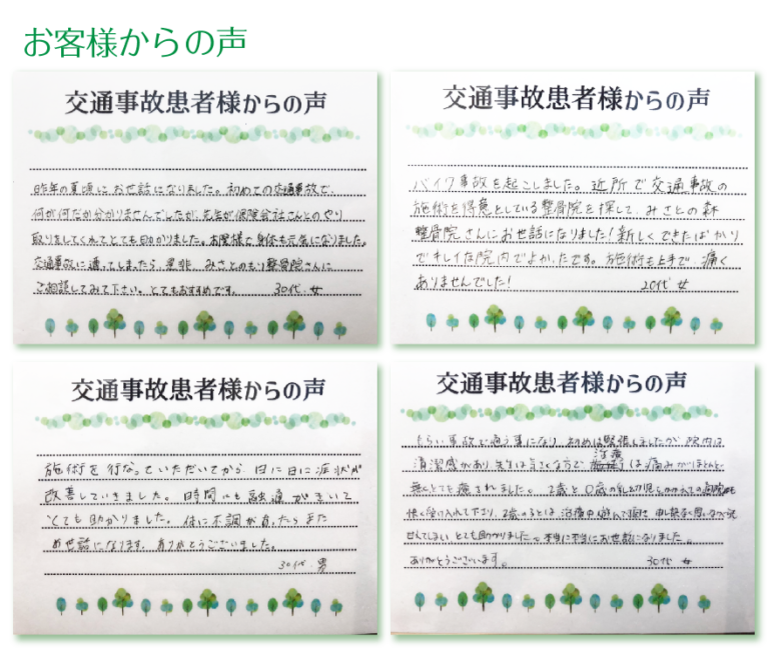 お客様からの声
交通事故患者様からの声
昨年の夏頃にお世話になりました。初めての交通事故で、
何が何だか分かりませんでしたが、先生が保険会社さんとのやり
取りをしてくれてとても助かりました。お陰様で身体も元気になりました。
交通事故に遭ってしまったら、是非、みさとのもり整骨院さんに
ご相談してみて下さい。とてもおすすめです。 30代 女
交通事故患者様からの声
バイク事故を起こしました。近所で交通事故の
施術を得意としている整骨院を探して、みさとの森
整骨院さんにお世話になりました!新しくできたばかり
でキレイな院内でよかったです。施術も上手で、痛く
ありませんでした! 20代 女
交通事故患者様からの声
施術を行なっていただいてから、日に日に症状が
改善していきました。時間にも融通がきいて
とても助かりました。体に不調が有ったらまた
お世話になります。ありがとうございました。
30代 男
交通事故患者様からの声
もらい事故で通う事になり、初めは緊張しましたが院内は
清潔感があり、先生は気さくな方で、治療は痛みがほとんど
無くとても癒されました。2歳と0歳の乳幼児
快く受け入れて下さり、2歳の
とても助かりました。本当に本当にお世話になりました。
ありがとうございます。 30代 女